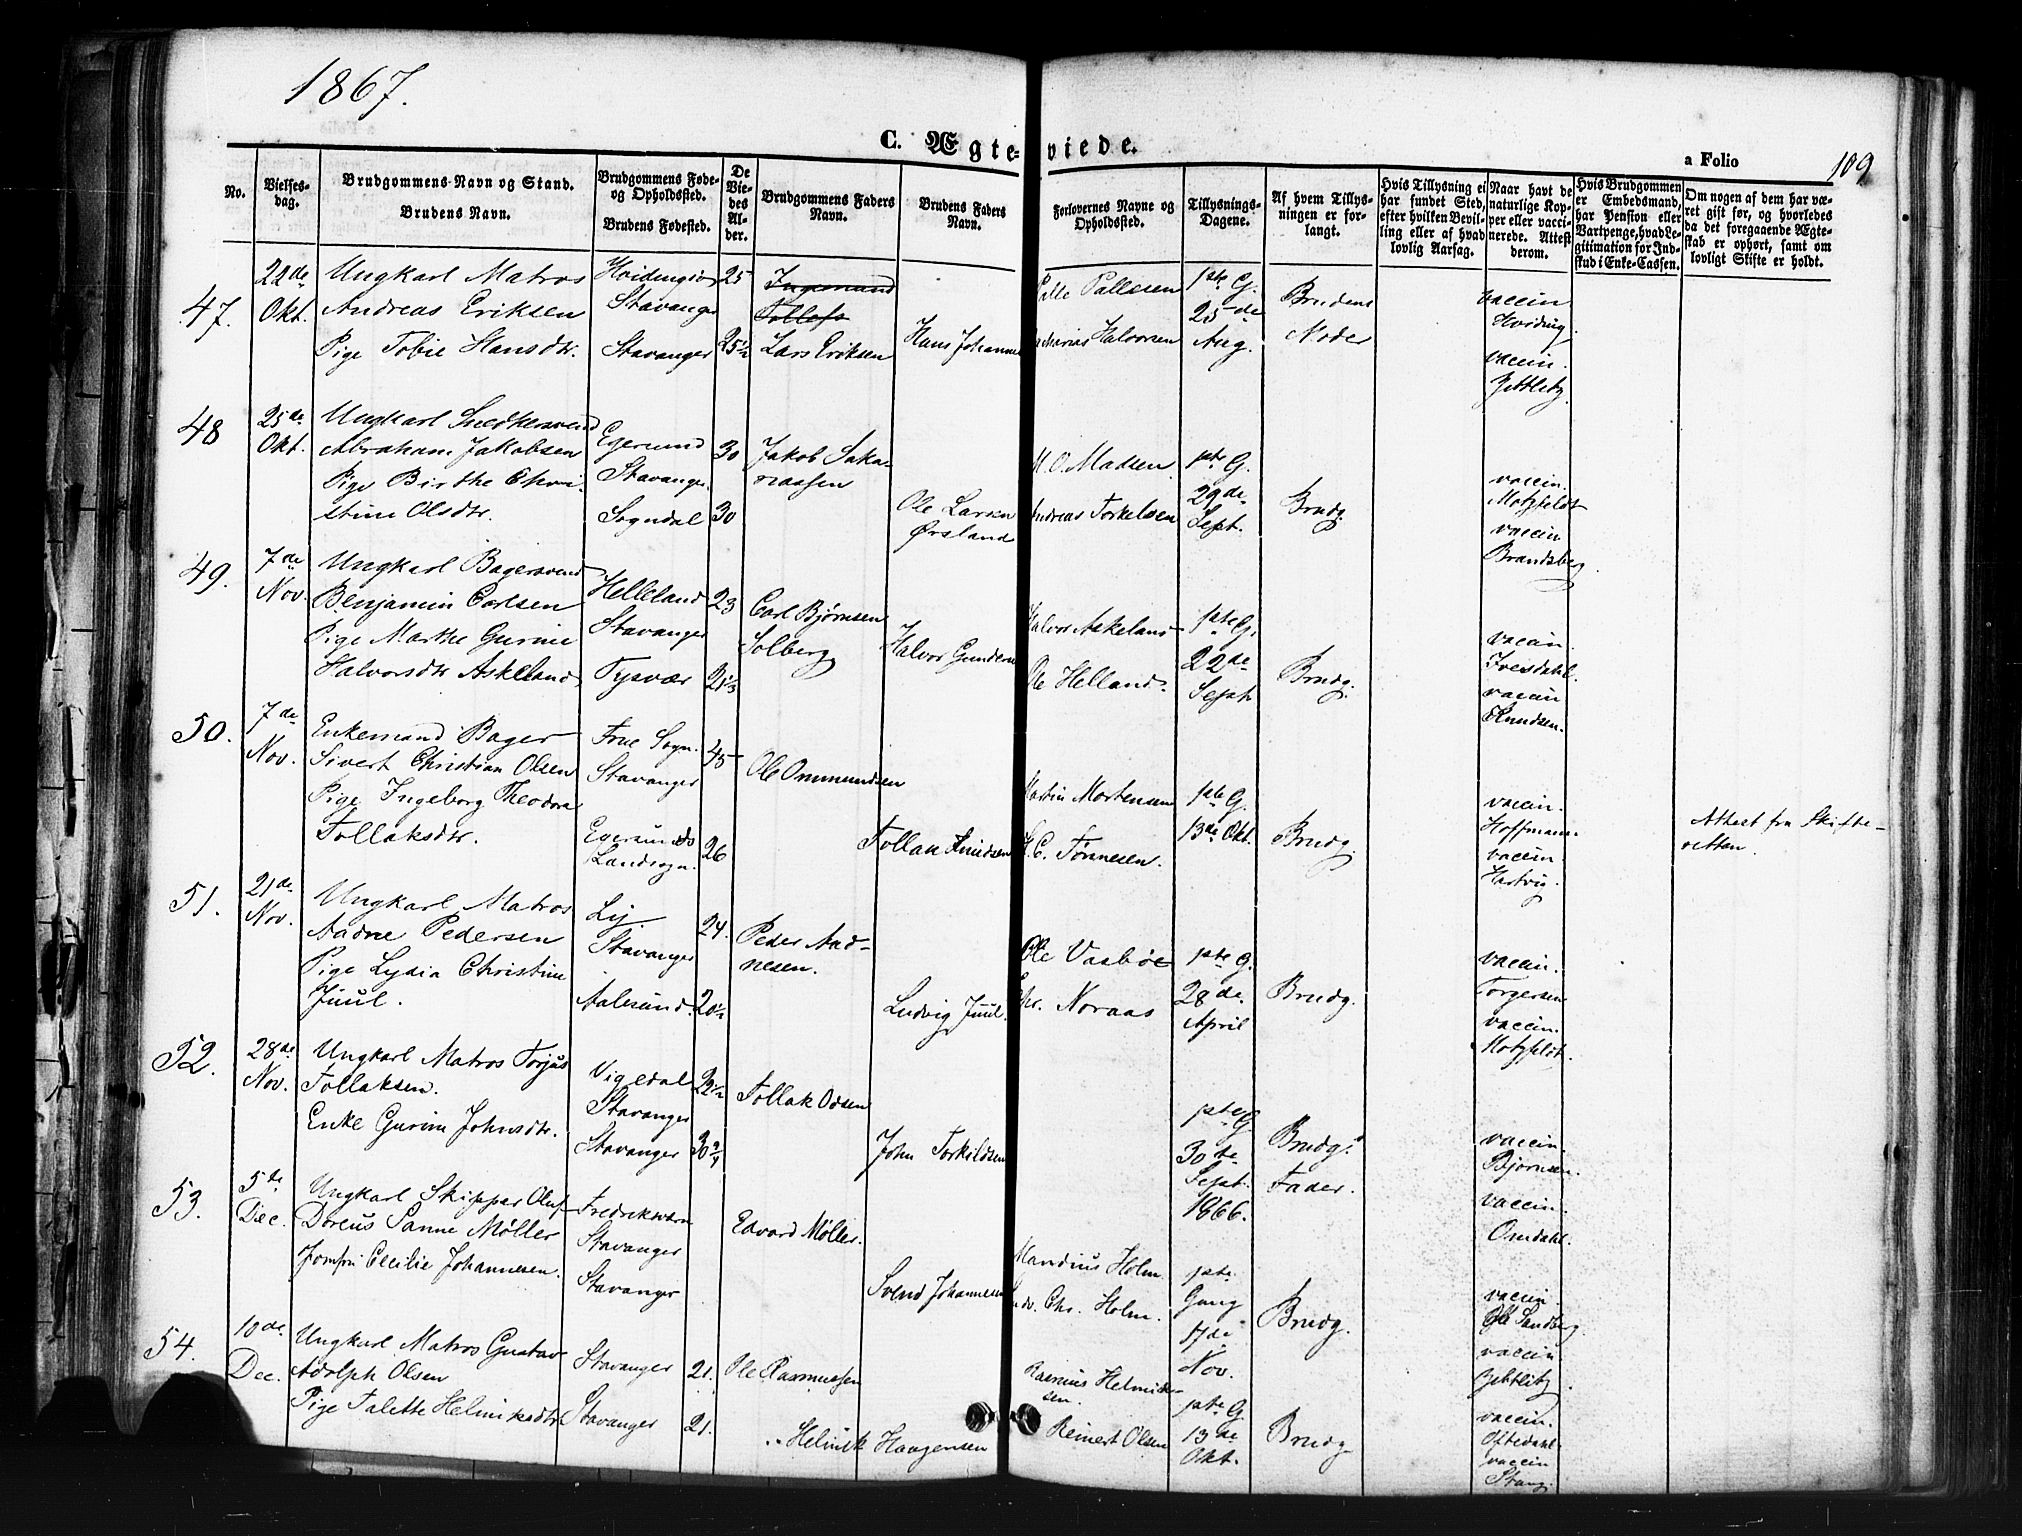 1867.
C. Ægteviede.
a Folio 109
No.
Vielses-
dag.
Brudgommens Navn og Stand.
Brudens Navn.
Brudgommens Føde-
og Opholdssted.
Brudens Fødested.
De
Vie-
des
Al-
der.
Brudgommens Faders
Navn.
Brudens Faders
Navn.
Forlovernes Navne og
Opholdssted.
Tillysnings-
Dagene.
Af hvem Tillys-
ningen er for-
langt.
Hvis Tillysning ei
har fundet Sted,
efter hvilken Bevil-
ling eller af hvad
lovlig Aarsag.
Naar havt de
naturlige Kop-
per eller vacci-
nerede. Attest
derom.
Hvis Brudgommen
er Embedsmand,
har Pension eller
Vartpenge, hvad Le-
gitimation for Ind-
skud i Enke-Cassen.
Om nogen af dem har væ-
ret gift før, og hvorledes
da det foregaaende Ægte-
skab er ophørt, samt om
lovligt Skifte er holdt.
47.
22de
Okt.
Ungkarl Matros
Andreas Eriksen
Pige Tobie Hansdtr.
Stavanger
Stavanger
25
25 1/2
Ingemund
Tollefs
Lars Eriksen
Hans Johannes
Palle Pallesen
Halvorsen
1ste G.
25de
Aug.
Brudens
Moder
vaccin
Hviding.
vaccin.
Zettlitz.
48
25de
Okt.
Ungkarl Snedkersvend
Abraham Jakobsen
Pige Birthe Chri-
stine Olsdtr.
Egersund
Stavanger
Sogndal
30
30
Jakob Saka-
riassen
Ole Larsen
Ørsland
M. O. Madsen
Andreas Torkelsen
1ste G.
29de
Sept.
Brudg.
vaccin.
Motzfeldt
vaccin
Brandsberg.
49.
7de
Nov.
Ungkarl Bagersvend
Benjamin Carlsen
Pige Marthe Gurine
Halvorsdtr Askeland
Helleland
Stavanger
Tysvær
23
21 1/3
Carl Bjørnsen
Solberg
Halvor Gunders
Halvor Askeland
Ole Helland.
1ste G.
22de
Sept
Brudg.
vaccin.
Ivesdahl.
vaccin
Knudsen.
50.
7de
Nov.
Enkemand Bager
Sivert Christian Olsen
Pige Ingeborg Theodora
Tollaksdtr.
Frue Sogn.
Stavanger
Egersunds
Landsogn.
45
26
Ole Ommundsen
Tollak Knudsen
Martin Mortensen
C. Tønnesen.
1ste G.
13de Okt.
Brudg.
vaccin.
Hoffmann
vaccin.
Hartvig.
Attest fra Skifte-
retten.
51.
21de
Nov.
Ungkarl Matros
Aadne Pedersen
Pige Lydia Christine
Juul.
Ly
Stavanger
Aalesund.
24.
20 1/2
Peder Aad-
nesen.
Ludvig Juul.
Ole Vasbøe
Chr. Noraas
1ste G.
28de
April
Brudg.
vaccin.
Torgersen
vaccin.
Motzfeldt.
52.
28de
Nov.
Ungkarl Matros Torjus
Tollaksen.
Enke Gurine Johnsdtr.
Vigedal
Stavanger
Stavanger
22 1/2
30 3/4
Tollak Odsen
John Torkildsen
1ste G
30te
Sept.
1866.
Brudg.s
Fader.
vaccin.
Bjørnsen.
vaccin.
Omdahl.
53.
5te
Dec.
Ungkarl Skipper Oluf
Doreus Sanne Møller
Jomfru Cecilie Johannesen.
Fredriksværn
Stavanger
Stavanger
Edvard Møller.
Svend Johannesen
Mandius Holm.
Chr. Holm.
1ste
Gang
17de
Nov.
Brudg.
vaccin.
Ole Sandberg.
vaccin.
Zettlitz.
54.
10de
Dec.
Ungkarl Matros Gustav
Adolph Olsen
Pige Talette Helmiksdtr
Stavanger
Stavanger
21.
21.
Ole Rasmussen
Helmik Haagensen
Rasmus Helmik-
sen.
Reinert Olsen
1ste G
13de
Okt.
Brudg
vaccin.
Oftedahl
vaccin
Stang.